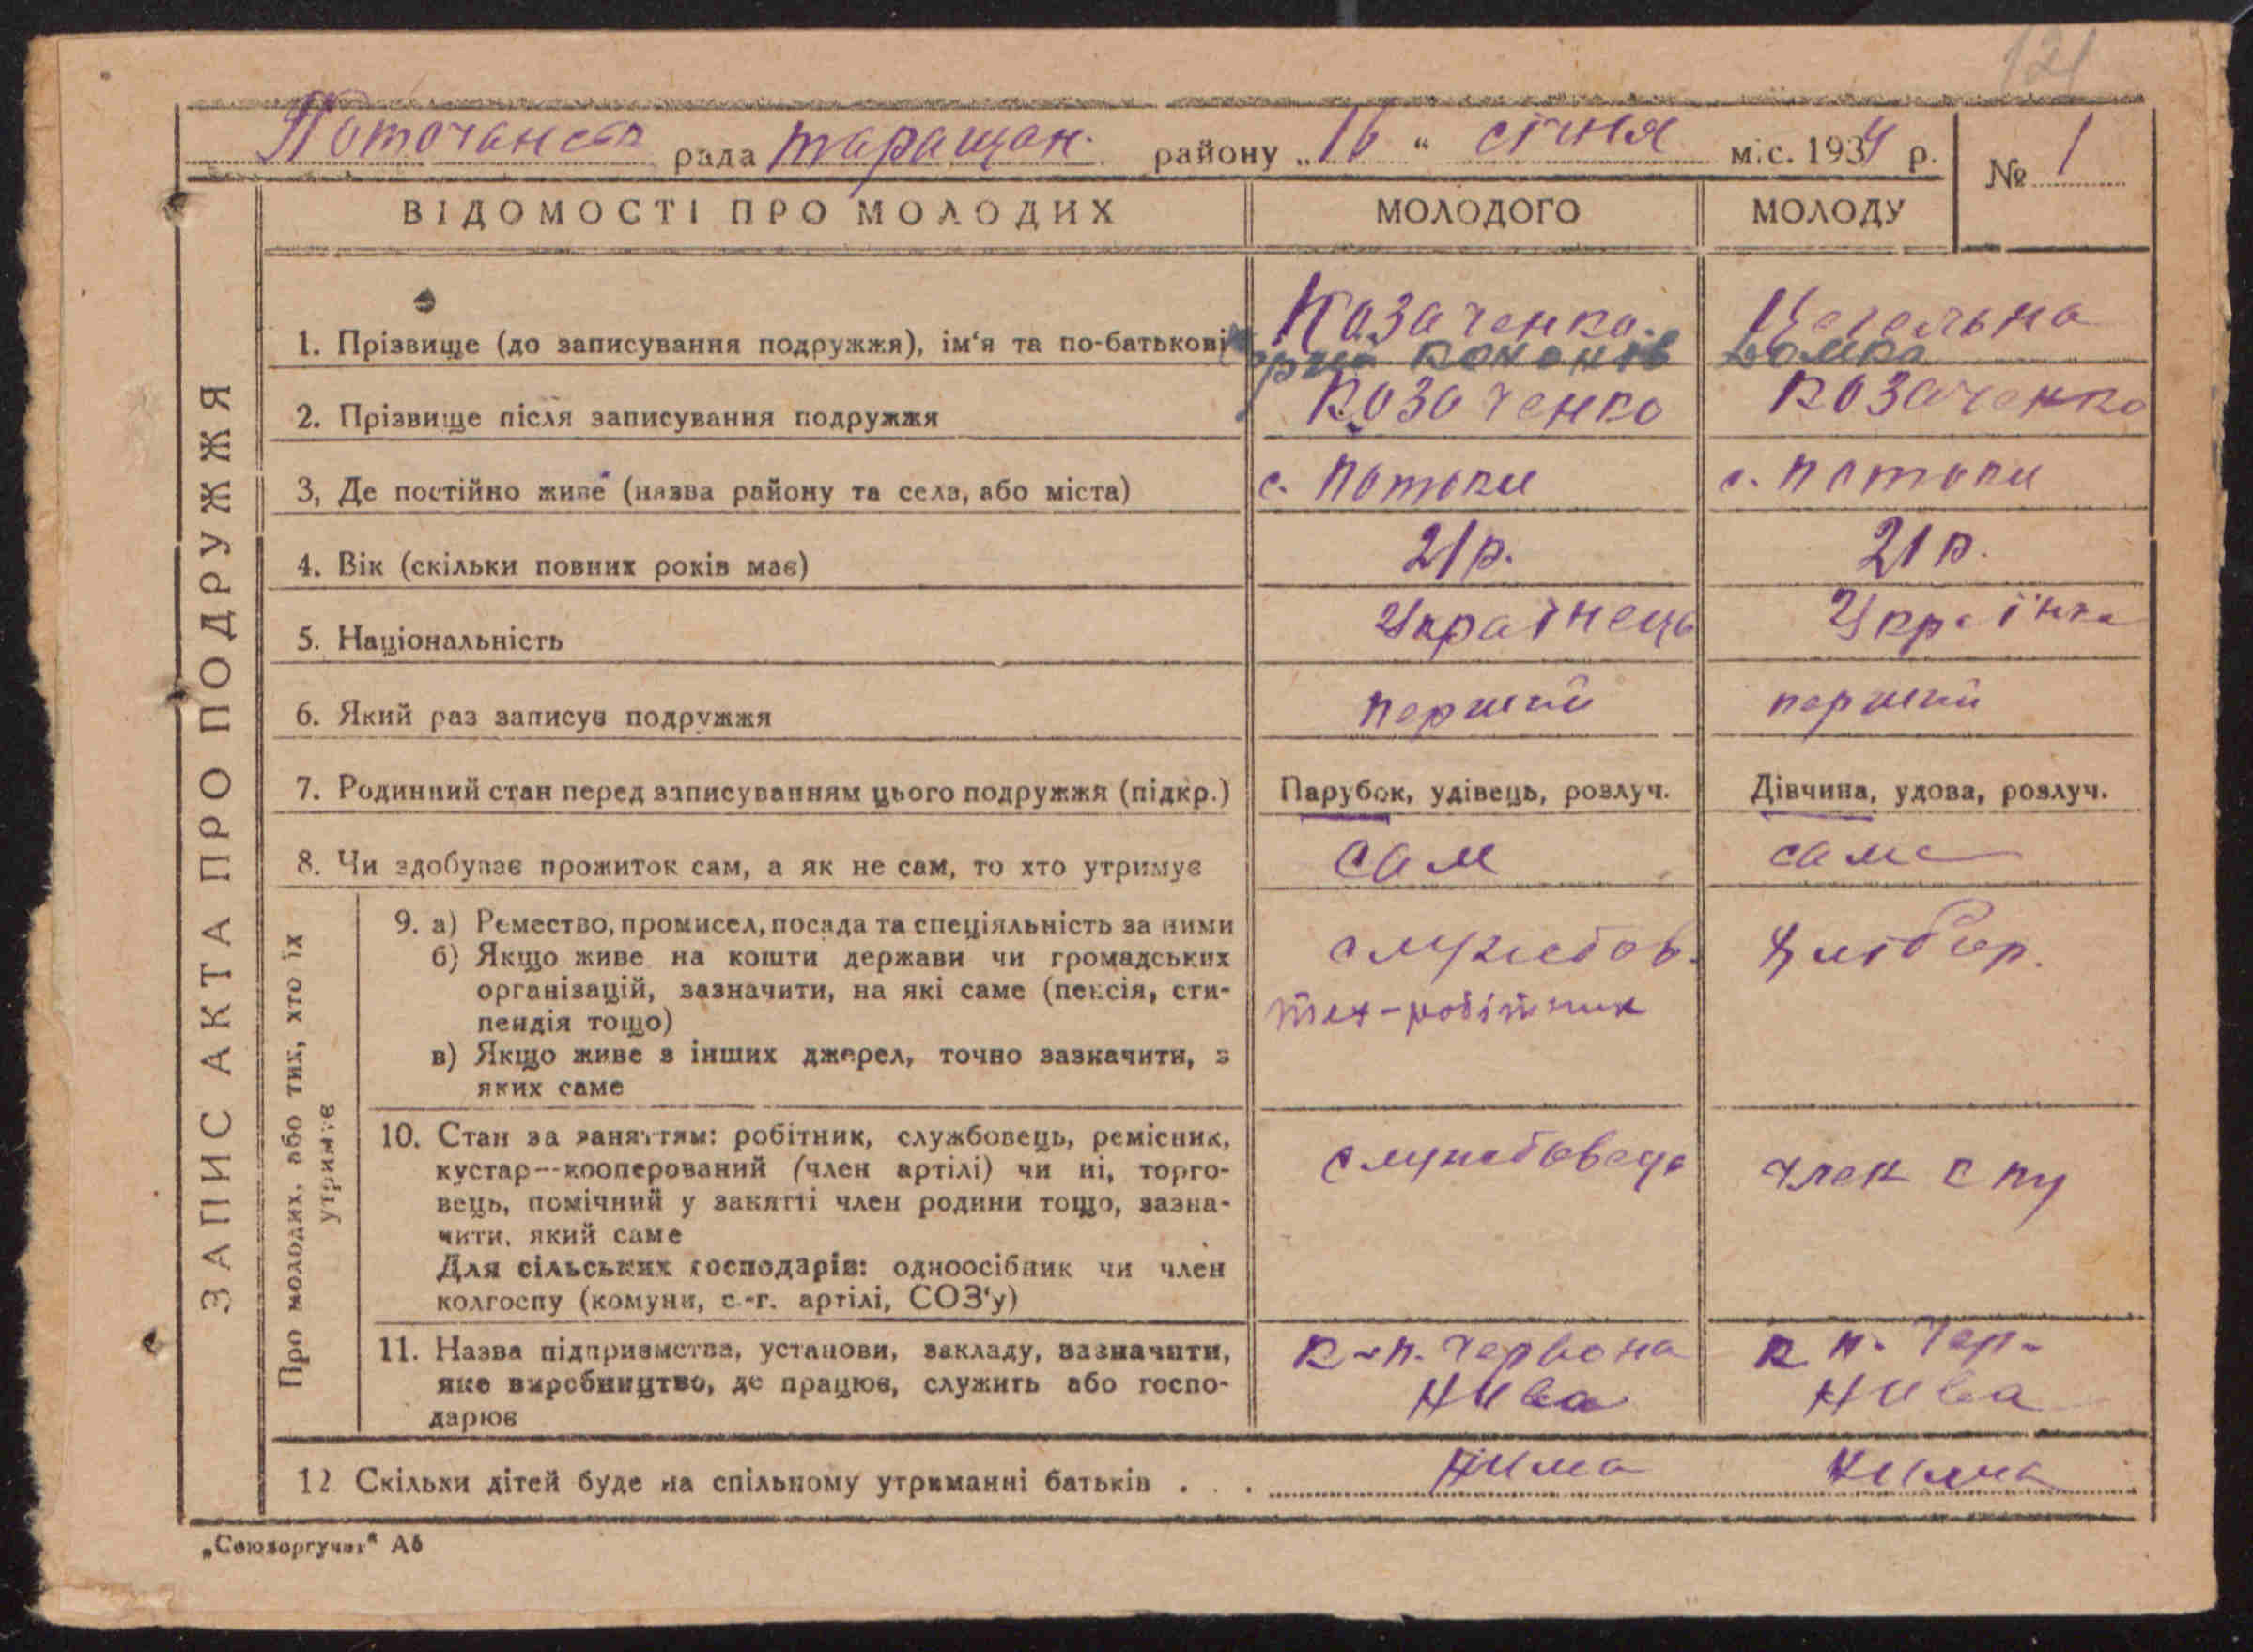 121
Поточанська рада таращан. району „16“ січня міс. 1934 р.
№ 1
ВІДОМОСТІ ПРО МОЛОДИХ
МОЛОДОГО
МОЛОДУ
ЗАПИС АКТА ПРО ПОДРУЖЖЯ
1. Прізвище (до записування подружжя), ім'я та по-батькові
Козаченко
Цегельна
Домка
2. Прізвище після записування подружжя
Козаченко
Козаченко
3, Де постійно живе (назва району та села, або міста)
с. Потоки
с. Потоки
4. Вік (скільки повних років має)
21 р.
21 р.
5. Національність
Українець
Українка
6. Який раз записує подружжя
перший
перший
7. Родинний стан перед записуванням цього подружжя (підкр.)
Парубок, удівець, розлуч.
Дівчина, удова, розлуч.
8. Чи здобуває прожиток сам, а як не сам, то хто утримує
сам
сама
Про молодих, або тих, хто їх
утримує
9. а) Ремество, промисел, посада та спеціяльність за ними
б) Якщо живе на кошти держави чи громадських
організацій, зазначити, на які саме (пенсія, сти-
пендія тощо)
в) Якщо живе з інших джерел, точно зазначити, з
яких саме
службов.
тех-робітник
хлібор.
10. Стан за заняттям: робітник, службовець, ремісник,
кустар--кооперований (член артілі) чи ні, торго-
вець, помічний у занятті член родини тощо, зазна-
чити, який саме
Для сільських господарів: одноосібник чи член
колгоспу (комуни, с.-г. артілі, СОЗ'у)
службовець
член
11. Назва підприємства, установи, закладу, зазначити,
яке виробництво, де працює, служить або госпо-
дарює
к-п. Червона
Нива
к п. Чер-
Нива
12 Скільки дітей буде на спільному утриманні батьків . . .
Нима
Нима
„Союзоргучет" А5